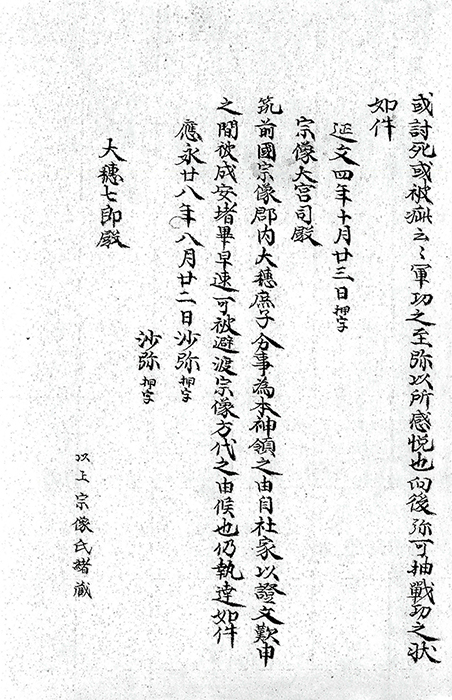 或討死或被疵云〻軍功之至弥以所感悦也向後弥可抽戰功之狀
如件
延文四年十月廿三日押字
宗像大宮司殿
筑前國宗像郡内大穗庶子分事為本神領之由自社家以證文歎申
之間被成安堵畢早速可被避渡宗像方代之由候也仍執達如件
應永廿八年八月廿二日沙弥押字
沙弥押字
大穗七郎殿
以上宗像氏緒蔵